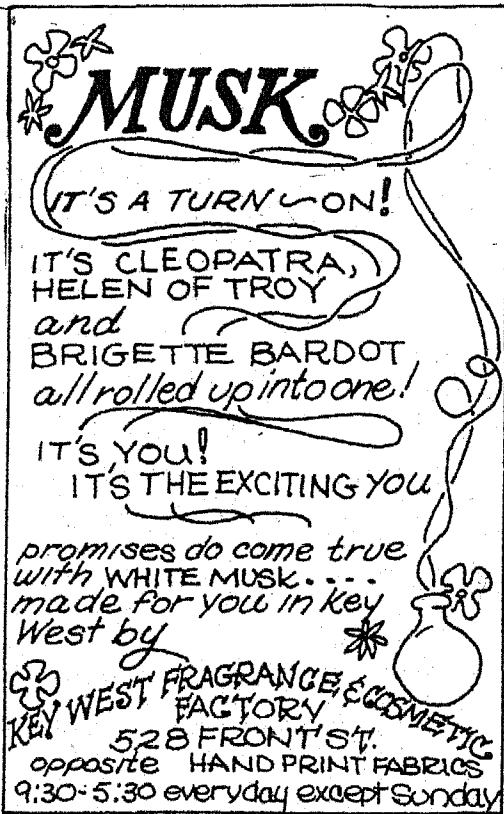 MUSK
IT'S A TURN-ON!
IT'S CLEOPATRA,
HELEN OF TROY
and
BRIGETTE BARDOT
all rolled up into one!
IT'S YOU!
IT'S THE EXCITING YOU
promises do come true
with WHITE MUSK....
made for you in Key
West by
KEY WEST FRAGRANCE & COSMETIC
FACTORY
528 FRONT ST.
opposite HAND PRINT FABRICS
9:30-5:30 everyday except Sunday